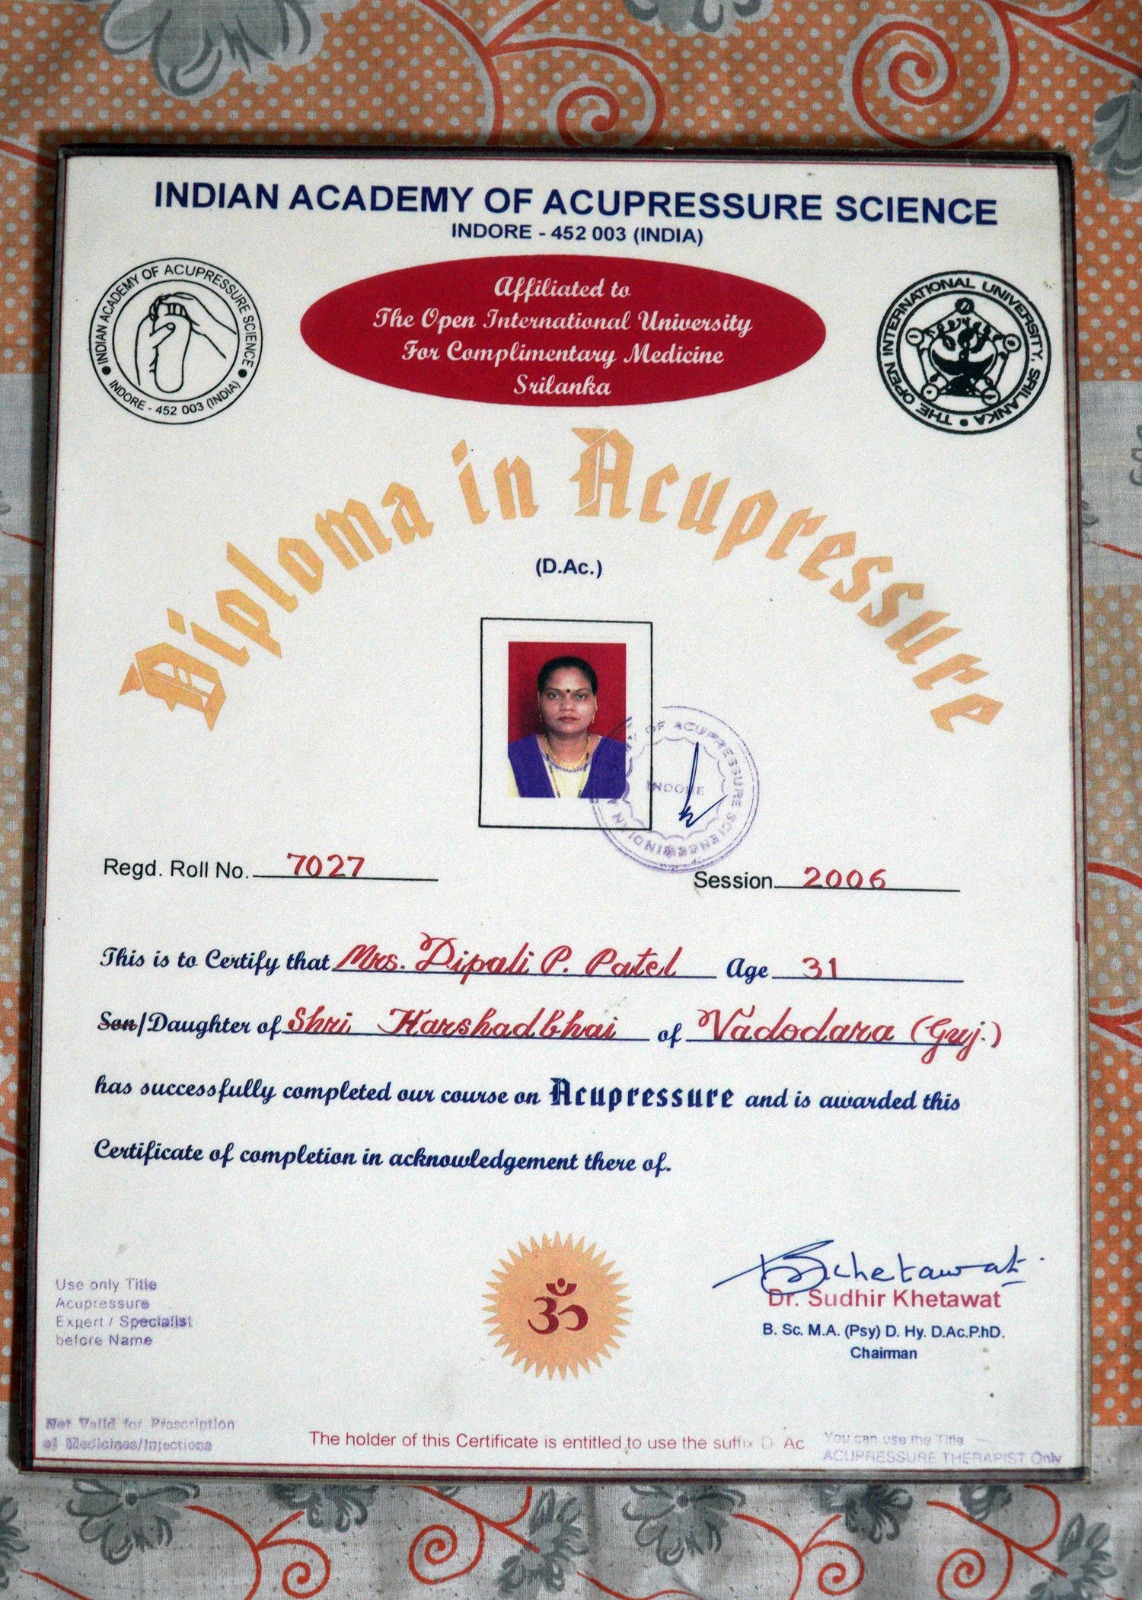 INDIAN ACADEMY OF ACUPRESSURE SCIENCE
INDORE - 452 003 (INDIA)
INDIAN ACADEMY OF ACUPRESSURE SCIENCE
INDORE - 452 003 (INDIA)
Affiliated to
The Open International University
For Complimentary Medicine
Srilanka
THE OPEN INTERNATIONAL UNIVERSITY, SRILANKA
Diploma in Acupressure
(D.Ac.)
OF ACUPRESSURE SCIENCE INDIAN
INDORE
Regd. Roll No. 7027
Session 2006
This is to Certify that Mrs. Dipali P. Patel Age 31
Son/Daughter of Shri Harshadbhai of Vadodara (Guj.)
has successfully completed our course on Acupressure and is awarded this
Certificate of completion in acknowledgement there of.
Use only Title
Acupressure
Expert / Specialist
before Name
ॐ
Skhetawat
Dr. Sudhir Khetawat
B. Sc. M.A. (Psy) D. Hy. D.Ac.PhD.
Chairman
Not Valid for Prescription
of Medicines/Injections
The holder of this Certificate is entitled to use the suffix D Ac
You can use the Title
ACUPRESSURE THERAPIST Only